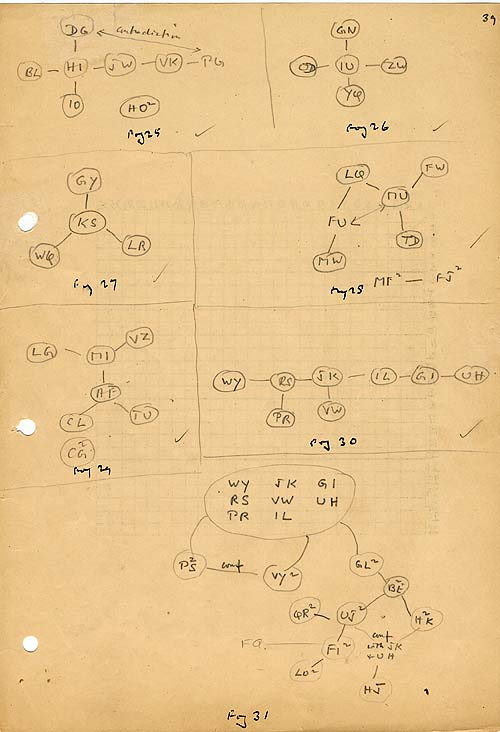 39
DG contradiction
BL HI JW VK PG
IO HO²
Fig 25
GN
IU ZW
YQ
Fig 26
GY
KS
WQ LR
Fig 27
LQ FW
MU
FUL
TD
MW
MF² — FJ²
Fig 28
VZ
LG MI
AF
CL TU
CG²
Fig 29
WY RS JK IL GI UH
PR VW
Fig 30
WY JK GI
RS VW UH
PR IL
PS² conf VY² GL²
BE²
QR² UJ² H²K
FG. FI² conf
with JK
+ UH
LO²
HJ
Fig 31